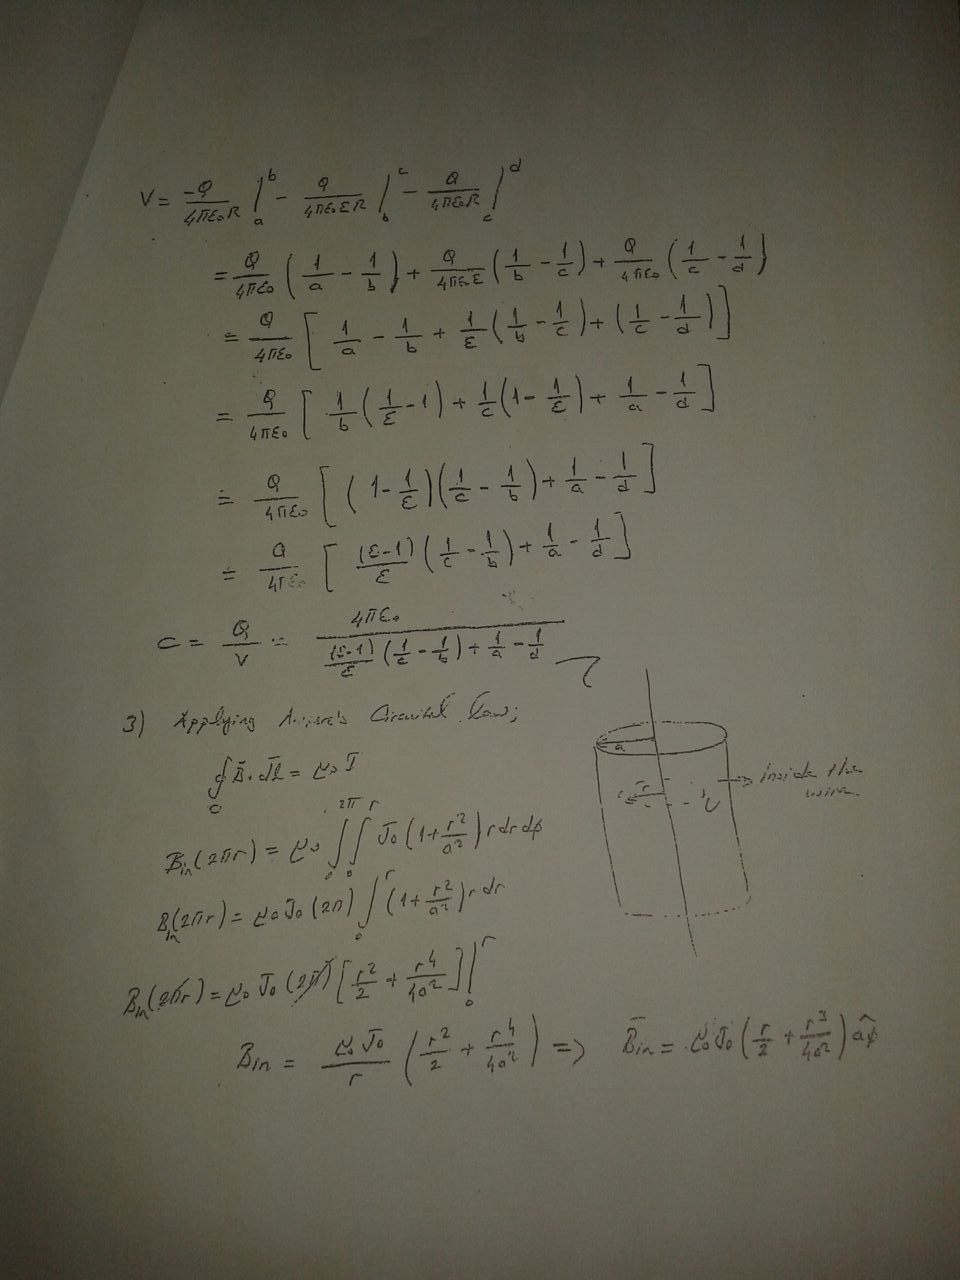 V = -Q/4πε₀R |ₐᵇ - Q/4πε₀εR |_b^c - Q/4πε₀R |_c^d
= Q/4πε₀ (1/a - 1/b) + Q/4πε₀ε (1/b - 1/c) + Q/4πε₀ (1/c - 1/d)
= Q/4πε₀ [1/a - 1/b + 1/ε (1/b - 1/c) + (1/c - 1/d)]
= Q/4πε₀ [1/b (1/ε - 1) + 1/c (1 - 1/ε) + 1/a - 1/d]
= Q/4πε₀ [(1 - 1/ε)(1/c - 1/b) + 1/a - 1/d]
= Q/4πε₀ [(ε-1)/ε (1/c - 1/b) + 1/a - 1/d]
C = Q/V = 4πε₀ / ((ε-1)/ε (1/c - 1/b) + 1/a - 1/d)
3) Applying Ampere's Circuital law;
∮_C B̄.dl̄ = μ₀ I
B_in(2πr) = μ₀ ∫₀^2π ∫₀^r J₀ (1 + r²/a²) r dr dφ
B_in(2πr) = μ₀ J₀ (2π) ∫₀^r (1 + r²/a²) r dr
B_in(2πr) = μ₀ J₀ (2π) [r²/2 + r⁴/4a²] |₀^r
B_in = μ₀ J₀/r (r²/2 + r⁴/4a²) => B̄_in = μ₀ J₀ (r/2 + r³/4a²) âφ
a
r
inside the
wire